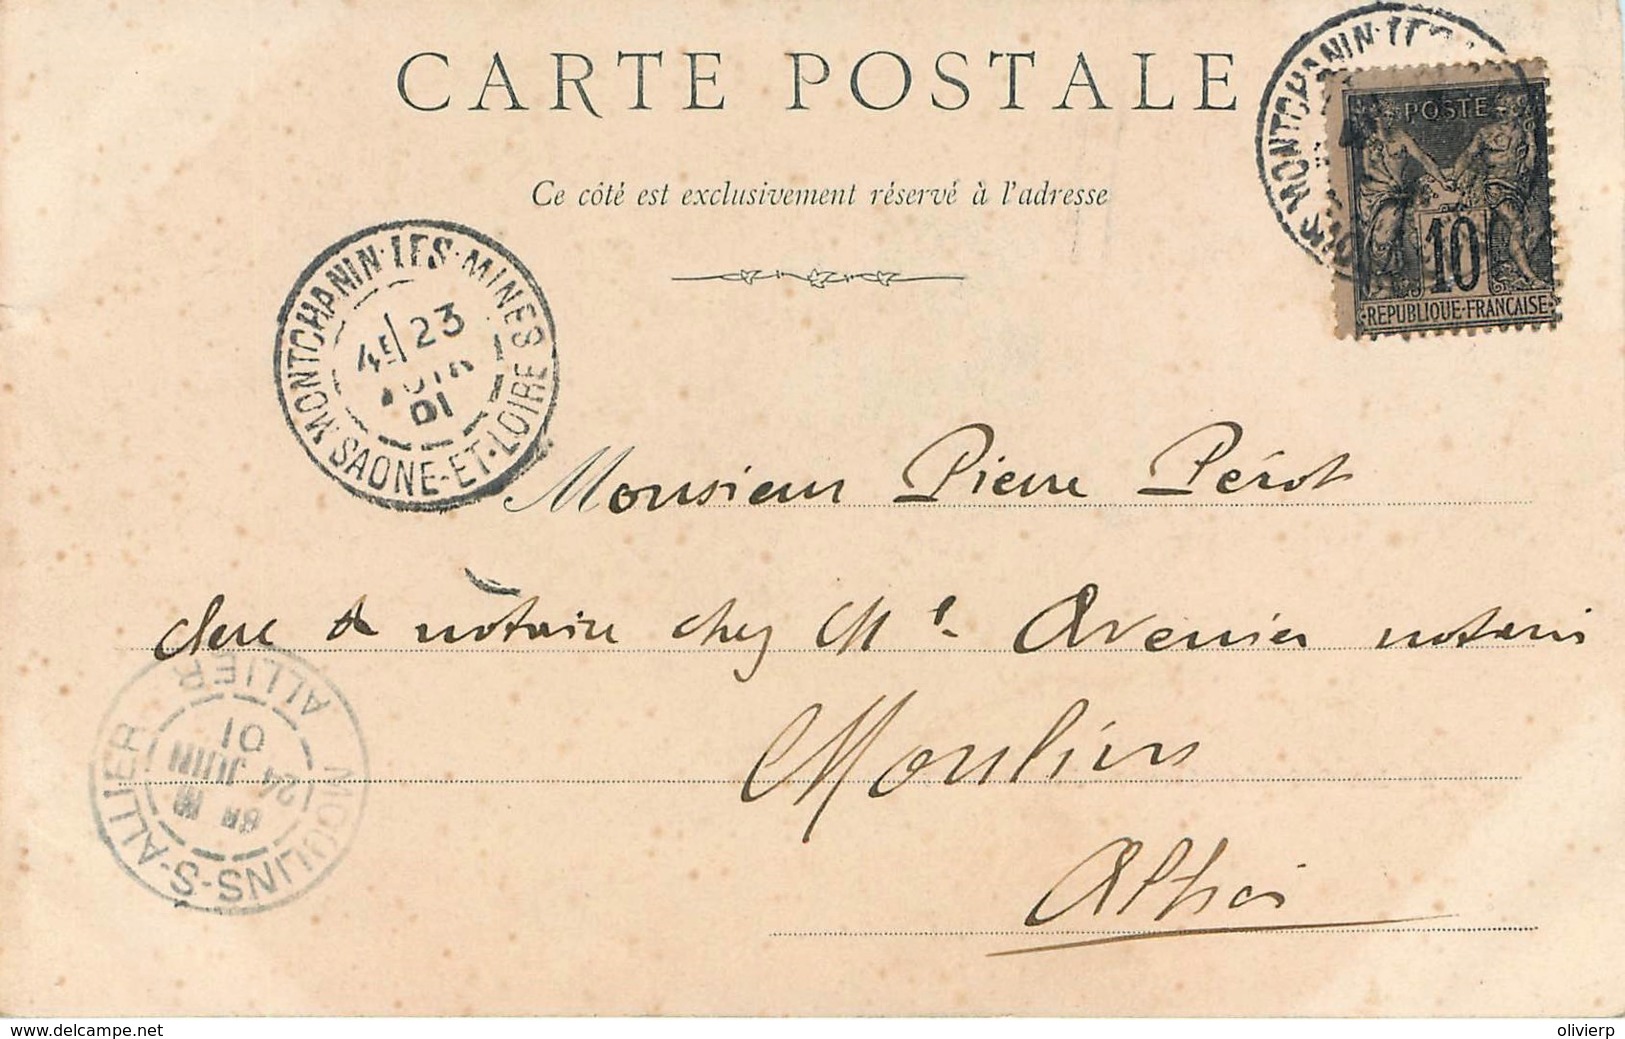 CARTE POSTALE
Ce côté est exclusivement réservé à l'adresse
MONTCHANIN-LES
POSTE
10
REPUBLIQUE-FRANÇAISE
MONTCHANIN-LES-MINES
4E/23
JUIN
01
SAONE-ET-LOIRE
Monsieur Pierre Pérot
clerc de notaire chez Me. Avenier notaire
Moulins
Allier
MOULINS-S-ALLIER
24 JUIN
01
ALLIER
www.delcampe.net
olivierp